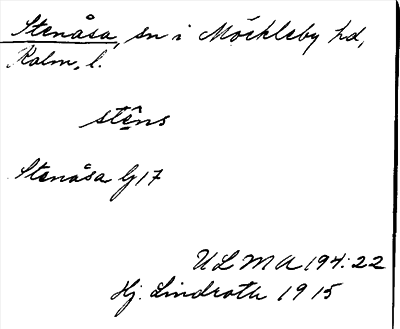 Stenåsa, sn i Möckleby hd,
Kalm. l.
stê̱ns
Stenåsa G17
ULMA 194:22
Hj. Lindroth 1915